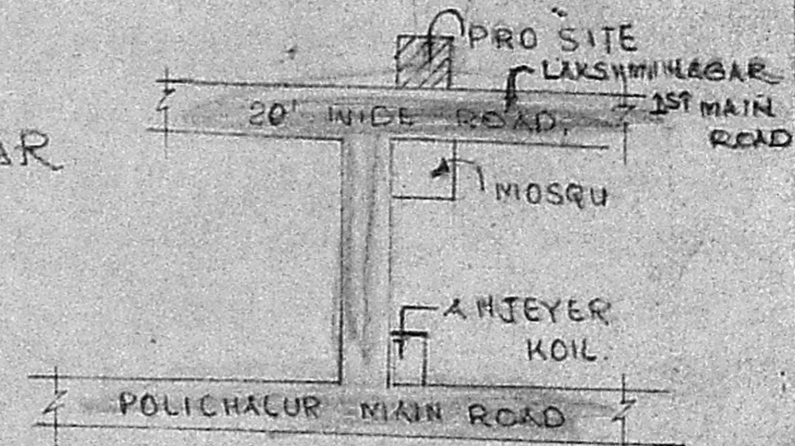 PRO SITE
LAKSHMINAGAR
1ST MAIN
ROAD
20' WIDE ROAD.
AR
MOSQU
ANJEYER
KOIL.
POLICHALUR MAIN ROAD